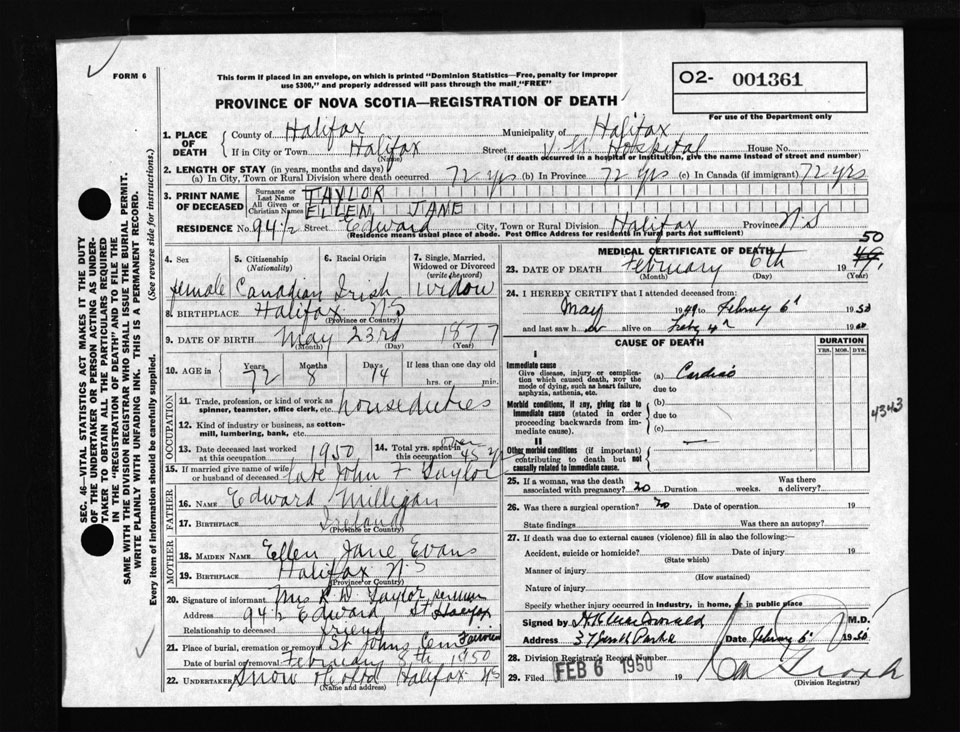 FORM 6
This form if placed in an envelope, on which is printed "Dominion Statistics—Free, penalty for improper
use $300," and properly addressed will pass through the mail "FREE"
O2- 001361
For use of the Department only
PROVINCE OF NOVA SCOTIA—REGISTRATION OF DEATH
1. PLACE OF DEATH { County of Halifax Municipality of Halifax
If in City or Town Halifax (Name) Street V. G. Hospital House No.
(If death occurred in a hospital or institution, give the name instead of street and number)
2. LENGTH OF STAY (in years, months and days)
(a) In City, Town or Rural Division where death occurred 72 yrs (b) In Province 72 yrs (c) In Canada (if immigrant) 72 yrs
3. PRINT NAME OF DECEASED { Surname or Last Name TAYLOR
All Given or Christian Names ELLEN JANE
RESIDENCE No. 94 1/2 Street Edward City, Town or Rural Division Halifax Province N.S
(Residence means usual place of abode. Post Office Address for residents in rural parts not sufficient)
4. Sex 5. Citizenship (Nationality) 6. Racial Origin 7. Single, Married, Widowed or Divorced (write the word)
female Canadian Irish widow
8. BIRTHPLACE Halifax NS
(Province or Country)
9. DATE OF BIRTH May 23rd 1877
(Month) (Day) (Year)
10. AGE in Years Months Days If less than one day
72 8 14 hrs. or min.
OCCUPATION
11. Trade, profession, or kind of work as spinner, teamster, office clerk, etc. houseduties
12. Kind of industry or business, as cotton-mill, lumbering, bank, etc.
13. Date deceased last worked at this occupation 1950 14. Total yrs. spent in this occupation over 45 yrs
15. If married give name of wife or husband of deceased late John F Taylor
FATHER
16. NAME Edward Milligan
17. BIRTHPLACE Ireland
(Province or Country)
MOTHER
18. MAIDEN NAME Ellen Jane Evans
19. BIRTHPLACE Halifax N.S
(Province or Country)
20. Signature of informant Mrs R W Taylor
Address 94 1/2 Edward St Halifax
Relationship to deceased friend
21. Place of burial, cremation or removal St Johns Cem Fairview
Date of burial or removal February 8th 1950
22. Undertaker Snow Halifax NS
(Name and address)
MEDICAL CERTIFICATE OF DEATH
50
23. DATE OF DEATH February 6th 19 49
(Month) (Day) (Year)
24. I HEREBY CERTIFY that I attended deceased from:
May 1949 to Februy 6th 1950
and last saw her alive on Feby 4th 1950
CAUSE OF DEATH
DURATION
YRS. MOS. DYS.
I
Immediate cause
Give disease, injury or complication which caused death, not the mode of dying, such as heart failure, asphyxia, asthenia, etc.
(a) Cardiac
due to
Morbid conditions, if any, giving rise to immediate cause (stated in order proceeding backwards from immediate cause).
(b)
due to
(c)
4343
II
Other morbid conditions (if important) contributing to death but not causally related to immediate cause.
25. If a woman, was the death associated with pregnancy? no Duration weeks. Was there a delivery?
26. Was there a surgical operation? no Date of operation 19
State findings Was there an autopsy?
27. If death was due to external causes (violence) fill in also the following:—
Accident, suicide or homicide? Date of injury 19
(State which)
Manner of injury
(How sustained)
Nature of injury
Specify whether injury occurred in industry, in home, or in public place
Signed by H K MacDonald M.D.
Address 37 South Park Date Februy 6th 1950
28. Division Registrar's Record Number
29. Filed FEB 6 1950 19
(Division Registrar)
SEC. 46—VITAL STATISTICS ACT MAKES IT THE DUTY
OF THE UNDERTAKER OR PERSON ACTING AS UNDER-
TAKER TO OBTAIN ALL THE PARTICULARS REQUIRED
IN THE "REGISTRATION OF DEATH" AND TO FILE THE
SAME WITH THE DIVISION REGISTRAR WHO SHALL ISSUE THE BURIAL PERMIT.
WRITE PLAINLY WITH UNFADING INK. THIS IS A PERMANENT RECORD.
Every item of information should be carefully supplied. (See reverse side for instructions.)